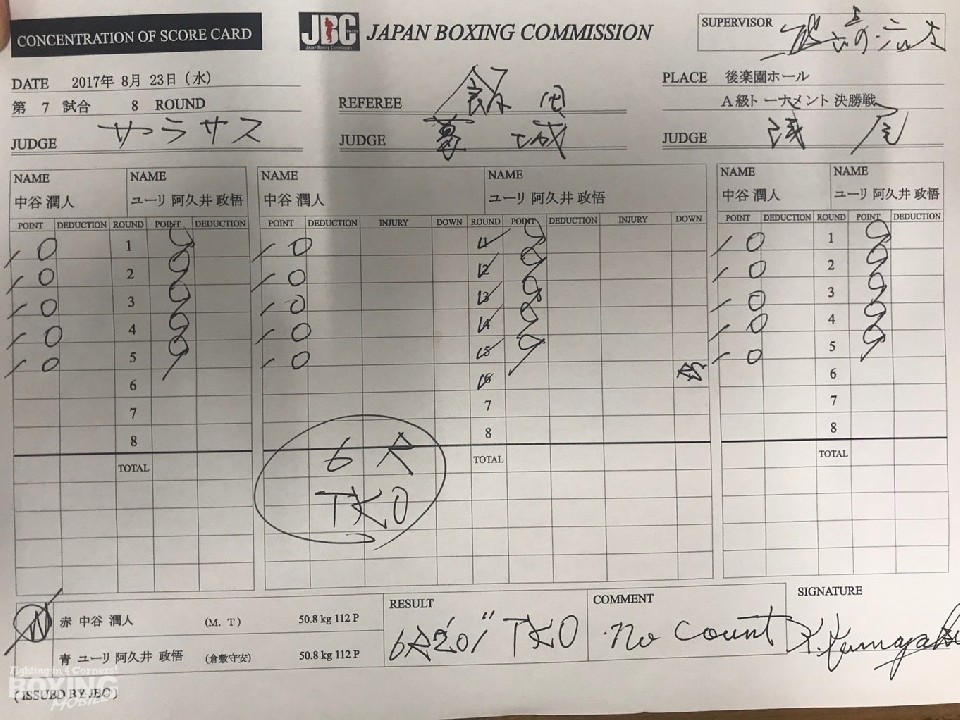 CONCENTRATION OF SCORE CARD
JBC
Japan Boxing Commission
JAPAN BOXING COMMISSION
SUPERVISOR
DATE 2017年 8月 23日 (水)
PLACE 後楽園ホール
第 7 試合 8 ROUND
REFEREE 飯田
A級トーナメント決勝戦
JUDGE サラサス
JUDGE 葛城
JUDGE 浅尾
NAME NAME NAME NAME NAME NAME
中谷 潤人 ユーリ 阿久井 政悟 中谷 潤人 ユーリ 阿久井 政悟 中谷 潤人 ユーリ 阿久井 政悟
POINT DEDUCTION ROUND POINT DEDUCTION POINT DEDUCTION INJURY DOWN ROUND POINT DEDUCTION INJURY DOWN POINT DEDUCTION ROUND POINT DEDUCTION
10 1 9 10 1 9 10 1 9
10 2 9 10 2 9 10 2 9
10 3 9 10 3 9 10 3 9
10 4 9 10 4 9 10 4 9
10 5 9 10 5 9 10 5 9
6 6 6
7 7 7
8 8 8
TOTAL TOTAL TOTAL
6R
TKO
赤 中谷 潤人 (M. T) 50.8 kg 112 P
青 ユーリ 阿久井 政悟 (倉敷守安) 50.8 kg 112 P
RESULT
6R2'01" TKO
COMMENT
no count
SIGNATURE
Fighting in 4 Corners!
BOXING
MOBILE
( ISSUED BY JBC )